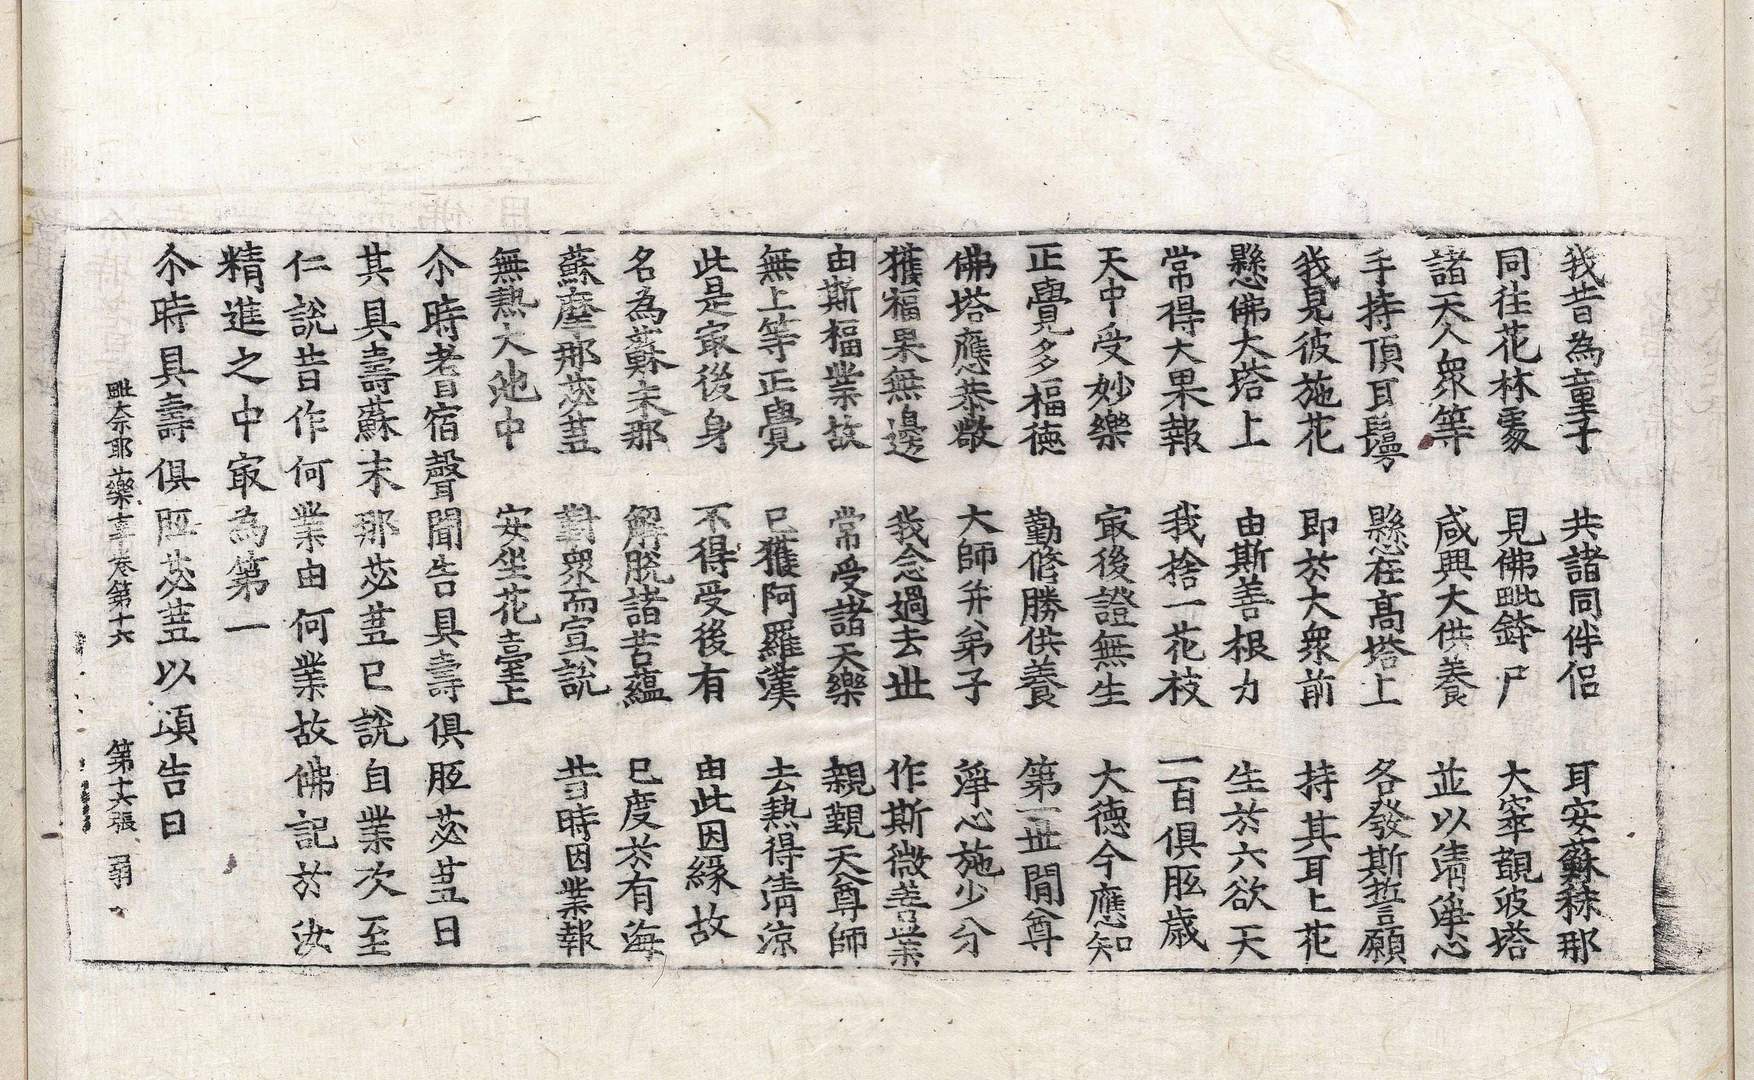 我昔為童子　共諸同伴侶　耳安蘇秣那
同往花林處　見佛毗鉢尸　大窣覩波塔
諸天人衆等　咸興大供養　並以清淨心
手持頂耳鬘　懸在高塔上　各發斯誓願
我見彼施花　即於大衆前　持其耳上花
懸佛大塔上　由斯善根力　生於六欲天
常得大果報　我捨一花枝　一百俱胝歳
天中受妙樂　㝡後證無生　大德今應知
正覺多福德　勤修勝供養　第一世間尊
佛塔應恭敬　大師并弟子　淨心施少分
獲福果無邊　我念過去世　作斯微善業
由斯福業故　常受諸天樂　親覲天尊師
無上等正覺　已獲阿羅漢　去熱得清涼
此是㝡後身　不得受後有　由此因緣故
名為蘇末那　解脫諸苦蘊　已度於有海
蘇摩那苾蒭　對衆而宣說　昔時因業報
無熱大池中　安坐花臺上
尒時耆宿聲聞告具壽俱胝苾蒭曰
其具壽蘇末那苾蒭已說自業次至
仁說昔作何業由何業故佛記於汝
精進之中㝡為第一
尒時具壽俱胝苾蒭以頌告曰
毗奈耶藥事卷第十六　第十六張